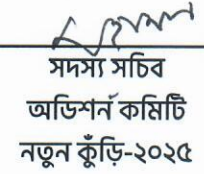 সদস্য সচিব
অডিশন কমিটি
নতুন কুঁড়ি-২০২৫